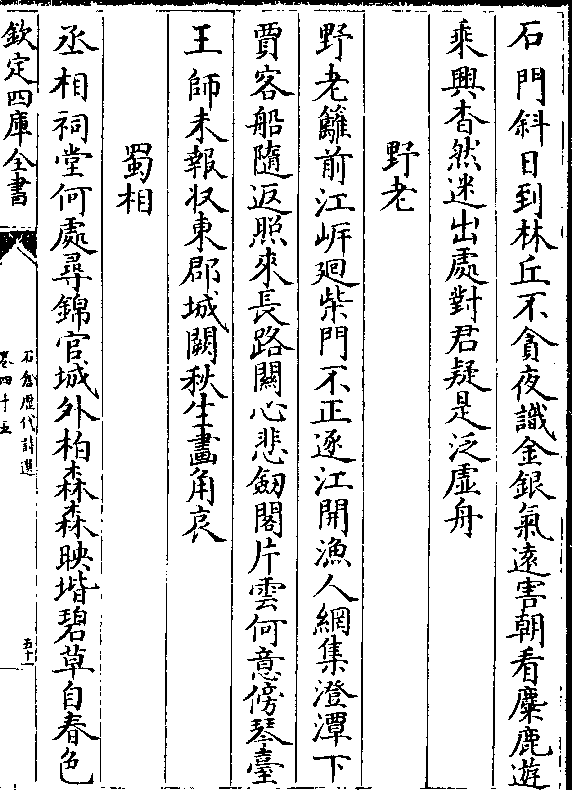 石門斜日到林丘不貪夜識金銀氣遠害朝看麋鹿遊
乘興杳然迷出處對君疑是泛虛舟
野老
野老籬前江岸廻柴門不正逐江開漁人網集澄潭下
賈客船隨返照來長路關心悲劒閣片雲何意傍琴臺
王師未報收東郡城闕秋生畫角哀
蜀相
丞相祠堂何處尋錦官城外柏森森映堦碧草自春色
欽定四庫全書
石倉歷代詩選
卷四十五
五十一